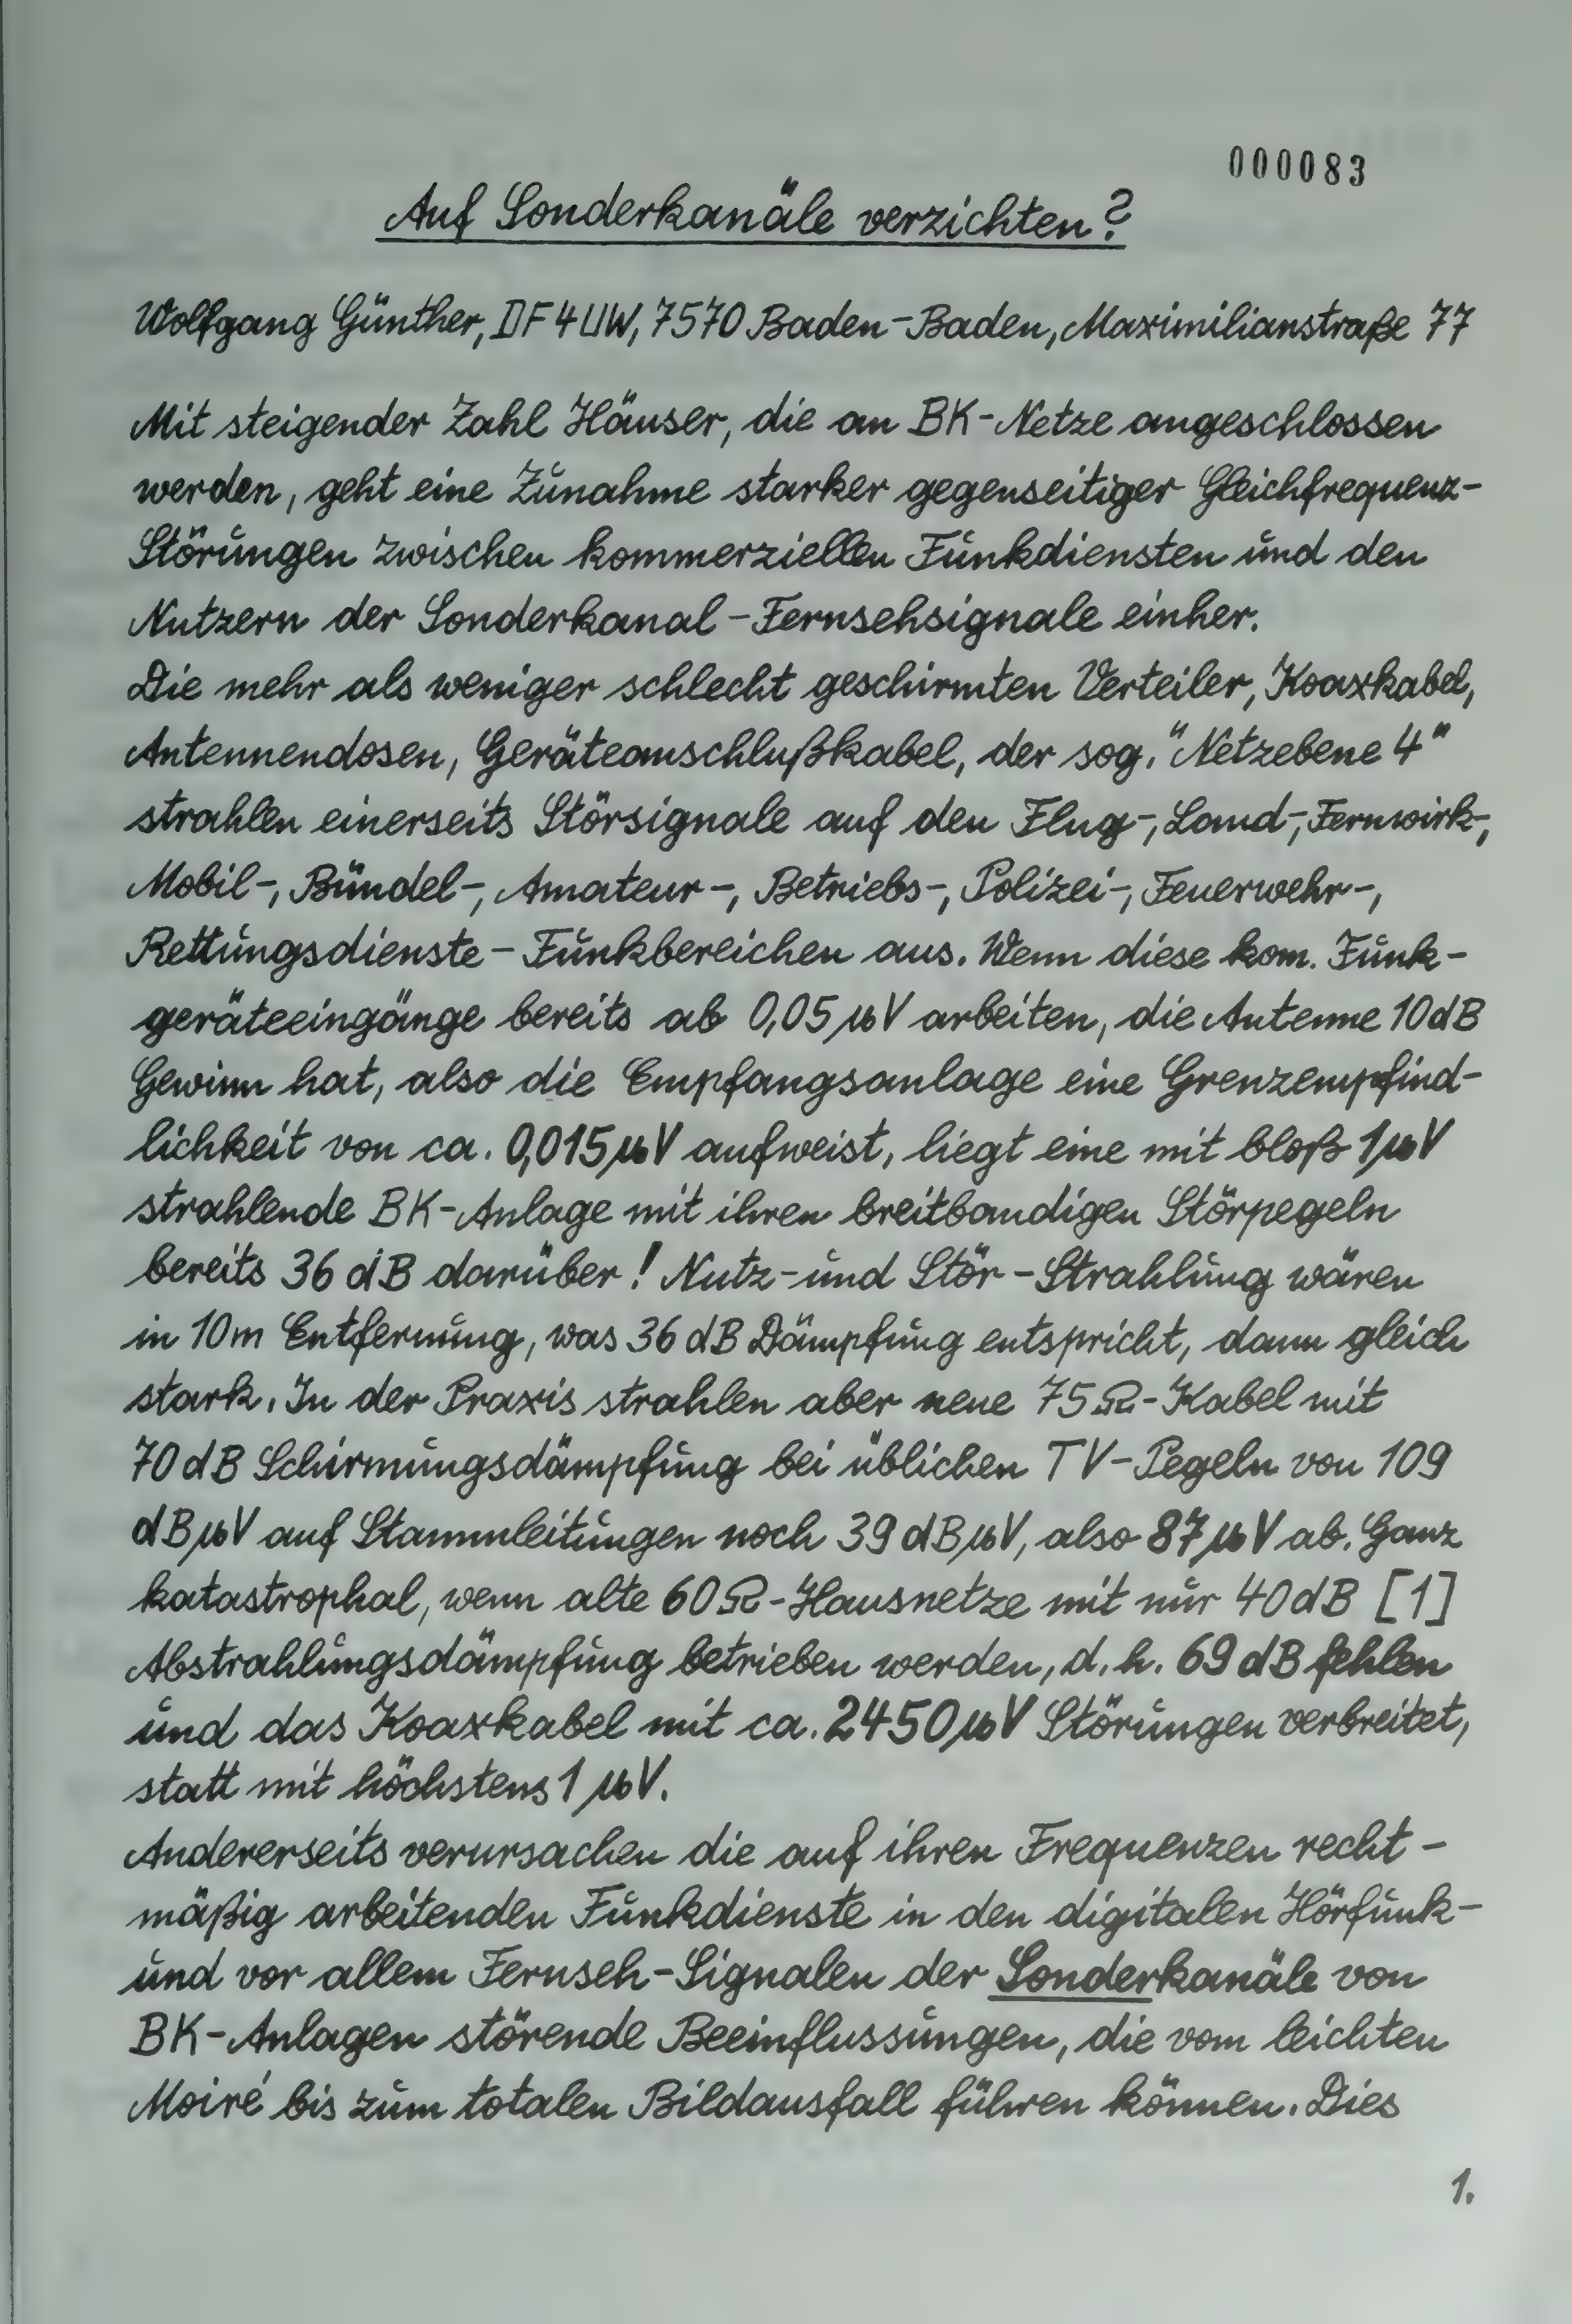 000083
Auf Sonderkanäle verzichten?
Wolfgang Günther, DF4UW, 7570 Baden-Baden, Maximilianstraße 77
Mit steigender Zahl Häuser, die an BK-Netze angeschlossen
werden, geht eine Zunahme starker gegenseitiger Gleichfrequenz-
Störungen zwischen kommerziellen Funkdiensten und den
Nutzern der Sonderkanal-Fernsehsignale einher.
Die mehr als weniger schlecht geschirmten Verteiler, Koaxkabel,
Antennendosen, Geräteanschlußkabel, der sog. "Netzebene 4"
strahlen einerseits Störsignale auf den Flug-, Land-, Fernwirk-,
Mobil-, Bündel-, Amateur-, Betriebs-, Polizei-, Feuerwehr-,
Rettungsdienste-Funkbereichen aus. Wenn diese kom. Funk-
geräteeingänge bereits ab 0,05 µV arbeiten, die Antenne 10dB
Gewinn hat, also die Empfangsanlage eine Grenzempfind-
lichkeit von ca. 0,015µV aufweist, liegt eine mit bloß 1µV
strahlende BK-Anlage mit ihren breitbandigen Störpegeln
bereits 36 dB darüber! Nutz-und Stör-Strahlung wären
in 10m Entfernung, was 36 dB Dämpfung entspricht, dann gleich
stark. In der Praxis strahlen aber neue 75Ω-Kabel mit
70dB Schirmungsdämpfung bei üblichen TV-Pegeln von 109
dBµV auf Stammleitungen noch 39 dBµV, also 87µV ab. Ganz
katastrophal, wenn alte 60Ω-Hausnetze mit nur 40dB [1]
Abstrahlungsdämpfung betrieben werden, d.h. 69 dB fehlen
und das Koaxkabel mit ca. 2450µV Störungen verbreitet,
statt mit höchstens 1 µV.
Andererseits verursachen die auf ihren Frequenzen recht-
mäßig arbeitenden Funkdienste in den digitalen Hörfunk-
und vor allem Fernseh-Signalen der Sonderkanäle von
BK-Anlagen störende Beeinflussungen, die vom leichten
Moiré bis zum totalen Bildausfall führen können. Dies
1.